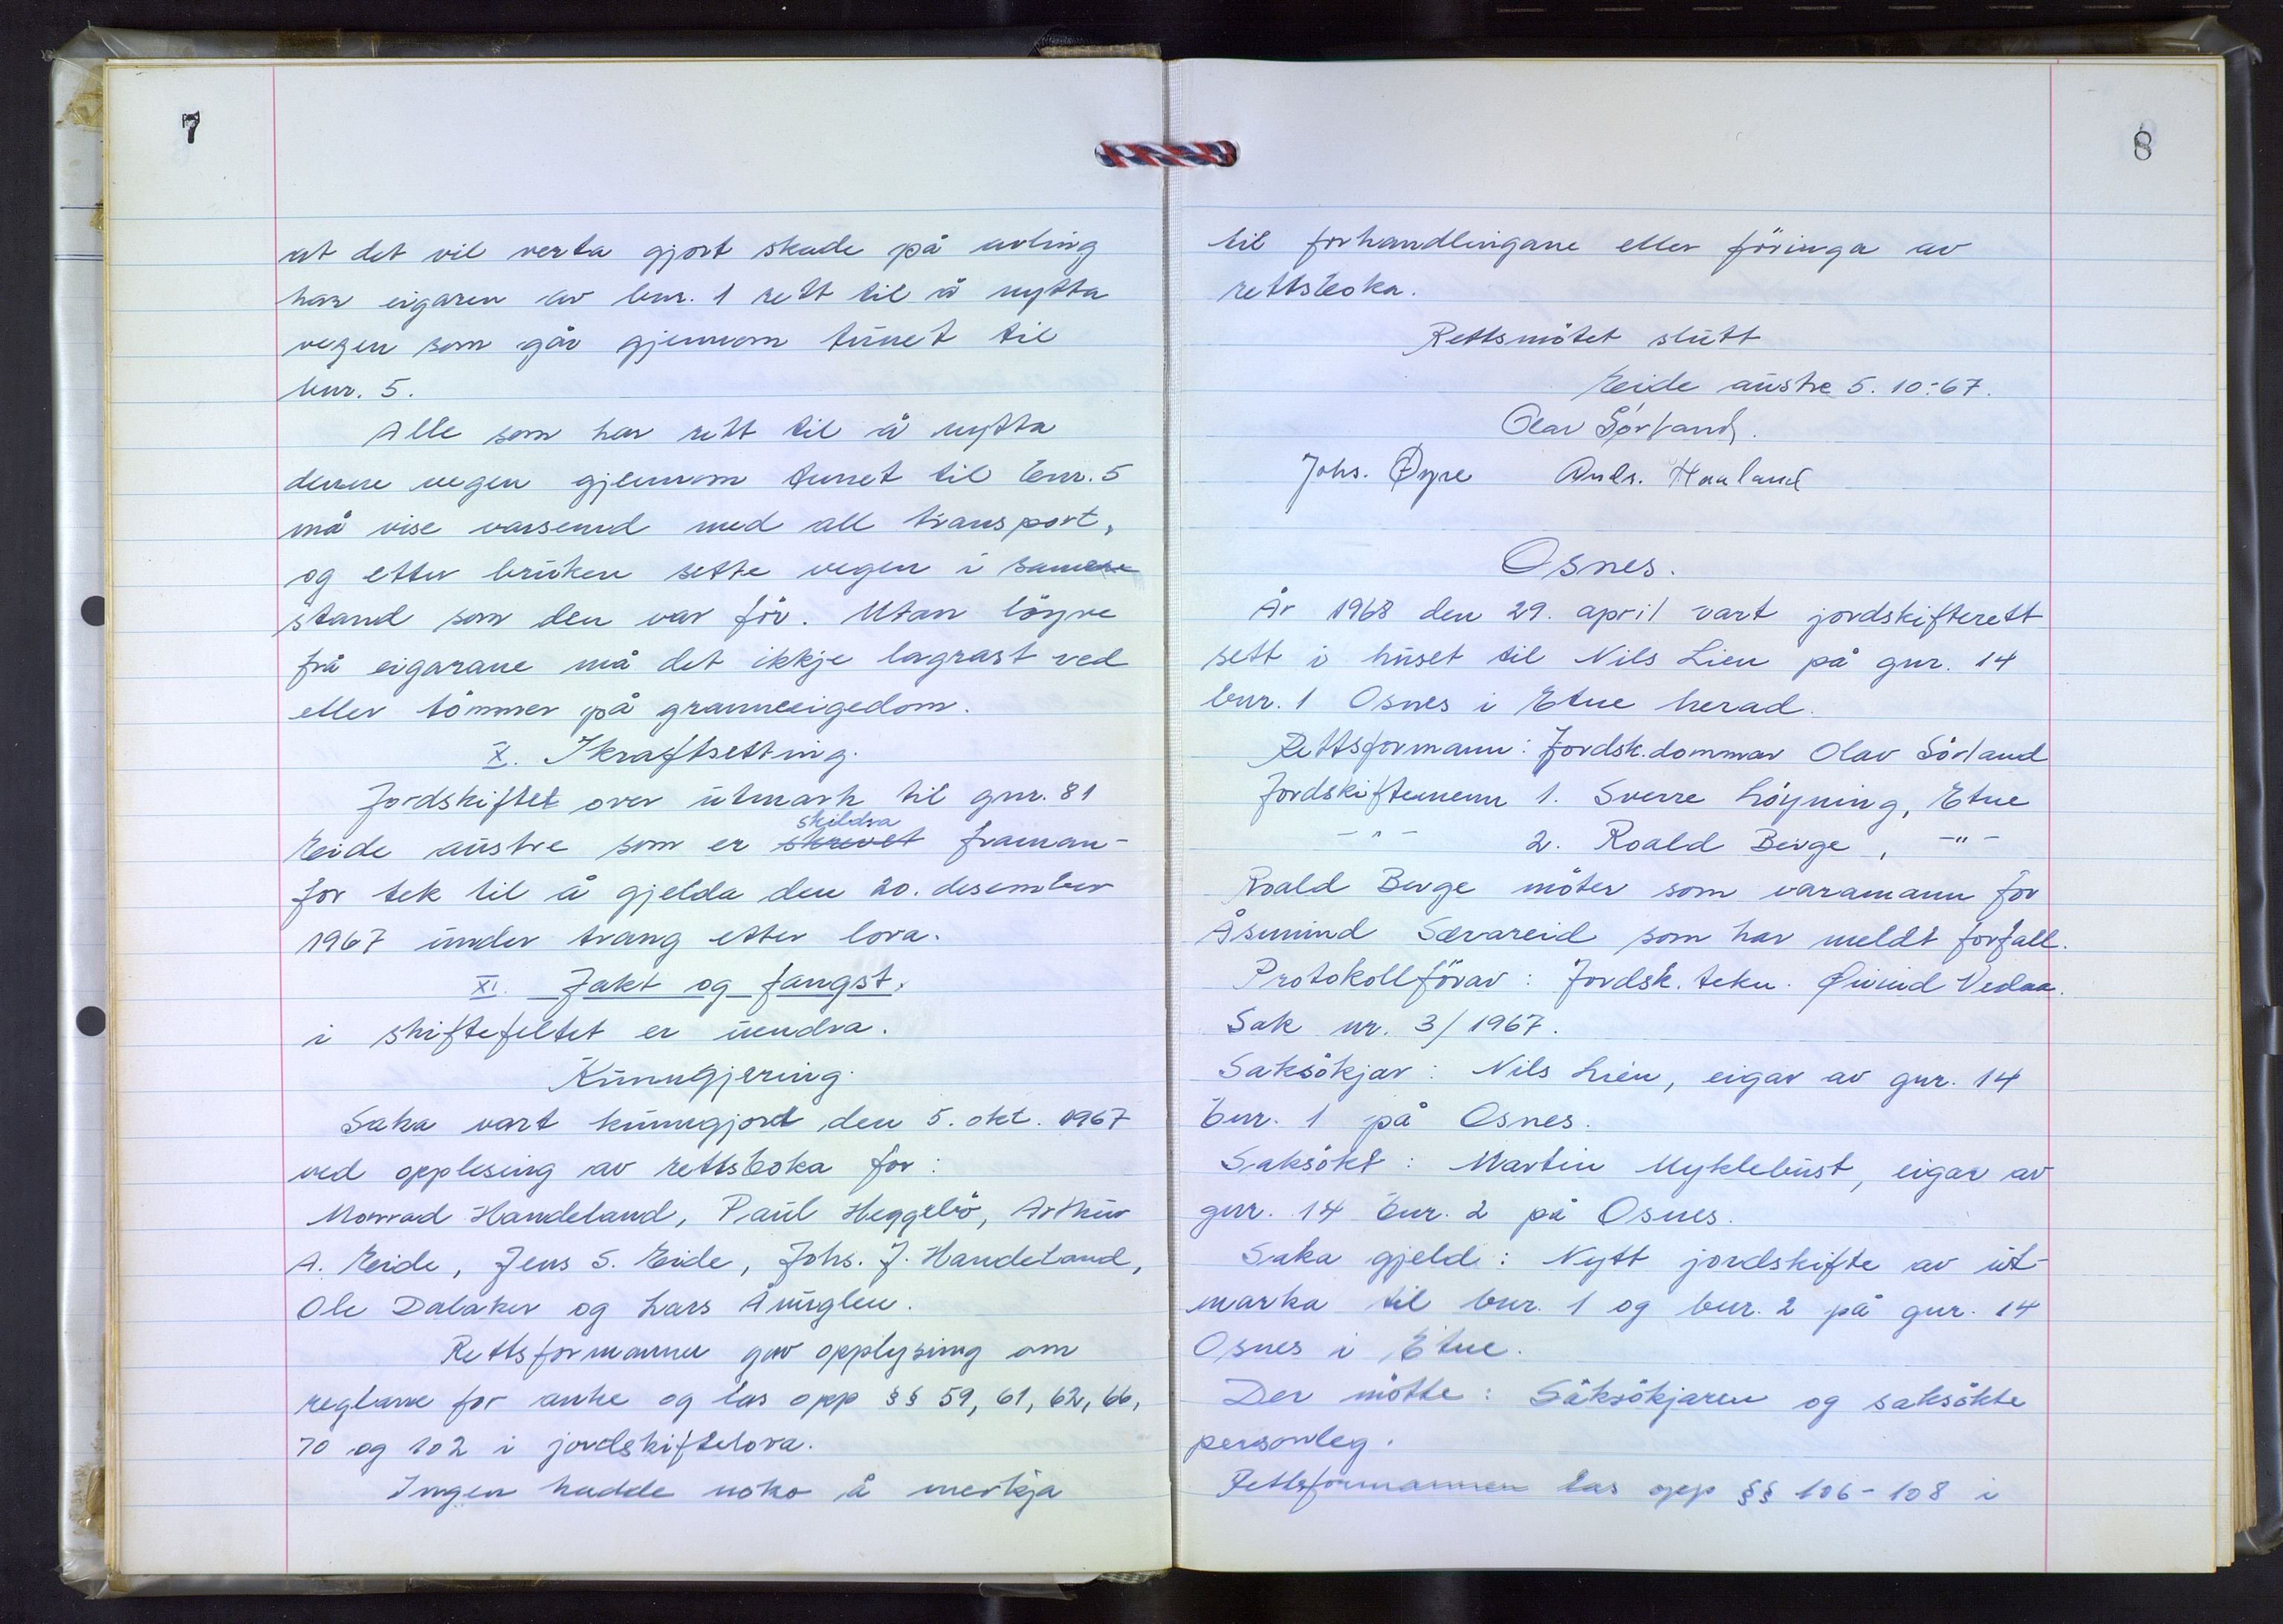 7
at det vil verta gjort skade på avling
har eigaren av bnr. 1 rett til å nytta
vegen som går gjennom tunet til
bnr. 5.
Alle som har rett til å nytta
denne vegen gjennom tunet til bnr. 5
må vise varsemd med all transport,
og etter bruken sette vegen i same
stand som den var för. Utan löyve
frå eigarane må det ikkje lagrast ved
eller tömmer på granneeigedom.
X. Ikraftsetting.
Jordskiftet over utmark til gnr. 81
skildra
Eide austre som er skrevet framan-
for tek til å gjelda den 20. desember
1967 under tvang etter lova.
XI. Jakt og fangst.
i skiftefeltet er uendra.
Kunngjering.
Saka vart kunngjort den 5. okt. 1967
ved opplesing av rettsboka for:
Monrad Handeland, Paul Heggebö, Arthur
A. Eide, Jens S. Eide, Johs. J. Handeland,
Ole Dalaker og Lars Ånuglen.
Rettsformannen gav opplysing om
reglane for anke og las opp §§ 59, 61, 62, 66,
70 og 102 i jordskiftelova.
Ingen hadde noko å merkja
8
til forhandlingane eller föringa av
rettsboka.
Rettsmötet slutt
Eide austre 5. 10.-67.
Olav Sörland.
Johs. Øyre Ands. Haaland
Osnes.
År 1968 den 29. april vart jordskifterett
sett i huset til Nils Lien på gnr. 14
bnr. 1 Osnes i Etne herad.
Rettsformann: Jordsk.dommar Olav Sörland
Jordskiftemenn 1. Sverre Löyning, Etne
-"- 2. Roald Berge, -"-
Roald Berge möter som varamann for
Åsmund Særareid som har meldt forfall.
Protokollförar: Jordsk. tekn. Øivind Vedaa.
Sak nr. 3/1967.
Saksökjar: Nils Lien, eigar av gnr. 14
bnr. 1 på Osnes.
Saksökt: Martin Myklebust, eigar av
gnr. 14 bnr. 2 på Osnes.
Saka gjeld: Nytt jordskifte av ut-
marka til bnr. 1 og bnr. 2 på gnr. 14
Osnes i Etne.
Der mötte: Saksökjaren og saksökte
personleg.
Rettsformannen las opp §§ 106-108 i